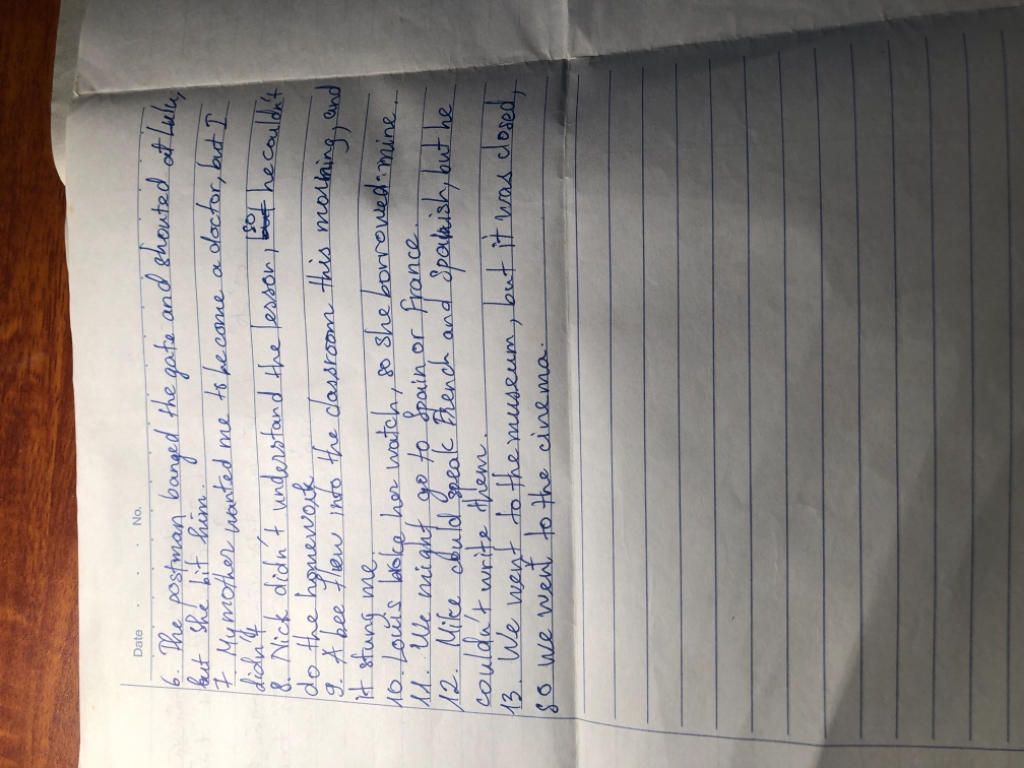 Date . . . . No.
6. The postman banged the gate and shouted at Lulu,
but she bit him.
7 My mother wanted me to become a doctor, but I
didn't
8. Nick didn't understand the lesson, so he couldn't
do the homework
9. A bee flew into the classroom this morning, and
it stung me.
10. Louis broke her watch, so she borrowed mine.
11. We might go to Spain or France.
12. Mike could speak French and Spanish, but he
couldn't write them.
13. We went to the museum, but it was closed,
so we went to the cinema.